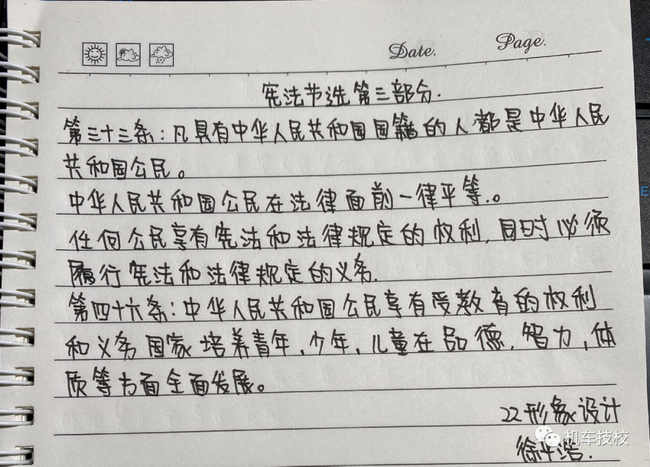 Date.
Page.
宪法节选第三部分.
第三十三条:凡具有中华人民共和国国籍的人都是中华人民
共和国公民。
中华人民共和国公民在法律面前一律平等.。
任何公民享有宪法和法律规定的权利,同时必须
履行宪法和法律规定的义务.
第四十六条:中华人民共和国公民享有受教育的权利
和义务国家培养青年,少年,儿童在品德,智力,体
质等方面全面发展。
22形象设计
机车技校
徐